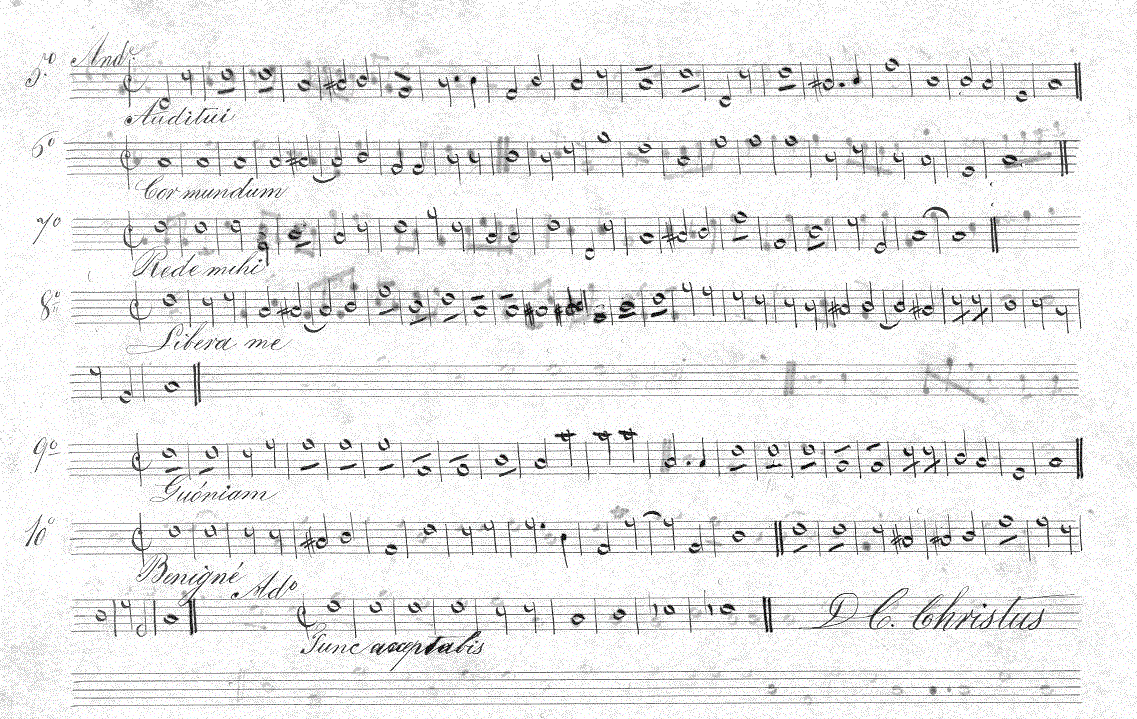 5.º And.e
Auditui
6º
Cor mundum
7º
Rede mihi
8º
Libera me
9º
Quóniam
10º
Benigné
Adº
Tunc acceptabis
10 10
D C. Christus